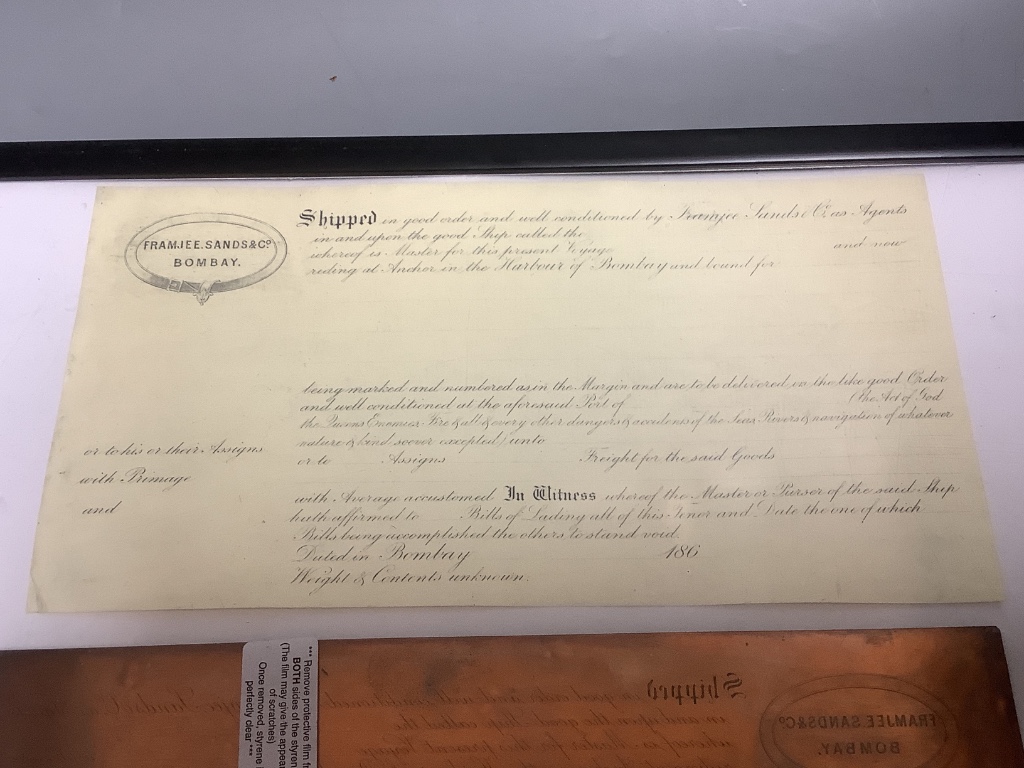 FRAMJEE.SANDS&Co
BOMBAY.
Shipped in good order and well conditioned by Framjee Sands & Co as Agents
in and upon the good Ship called the
whereof is Master for this present Voyage and now
riding at Anchor in the Harbour of Bombay and bound for
being marked and numbered as in the Margin and are to be delivered in the like good Order
and well conditioned at the aforesaid Port of (the Act of God
the Queens Enemies Fire & all & every other dangers & accidents of the Seas Rivers & navigation of whatever
nature & kind soever excepted) unto
or to his or their Assigns
or to Assigns Freight for the said Goods
with Primage
and
with Average accustomed In Witness whereof the Master or Purser of the said Ship
hath affirmed to Bills of Lading all of this Tenor and Date the one of which
Bills being accomplished the others to stand void.
Dated in Bombay 186
Weight & Contents unknown.
*** Remove protective film f
BOTH sides of the styren
(The film may give the appea
of scratches)
Once removed, styrene
perfectly clear ***
Shipped
in and upon the good Ship called the
whereof is Master for this present Voyage
FRAMJEE.SANDS&Co
BOMBAY.